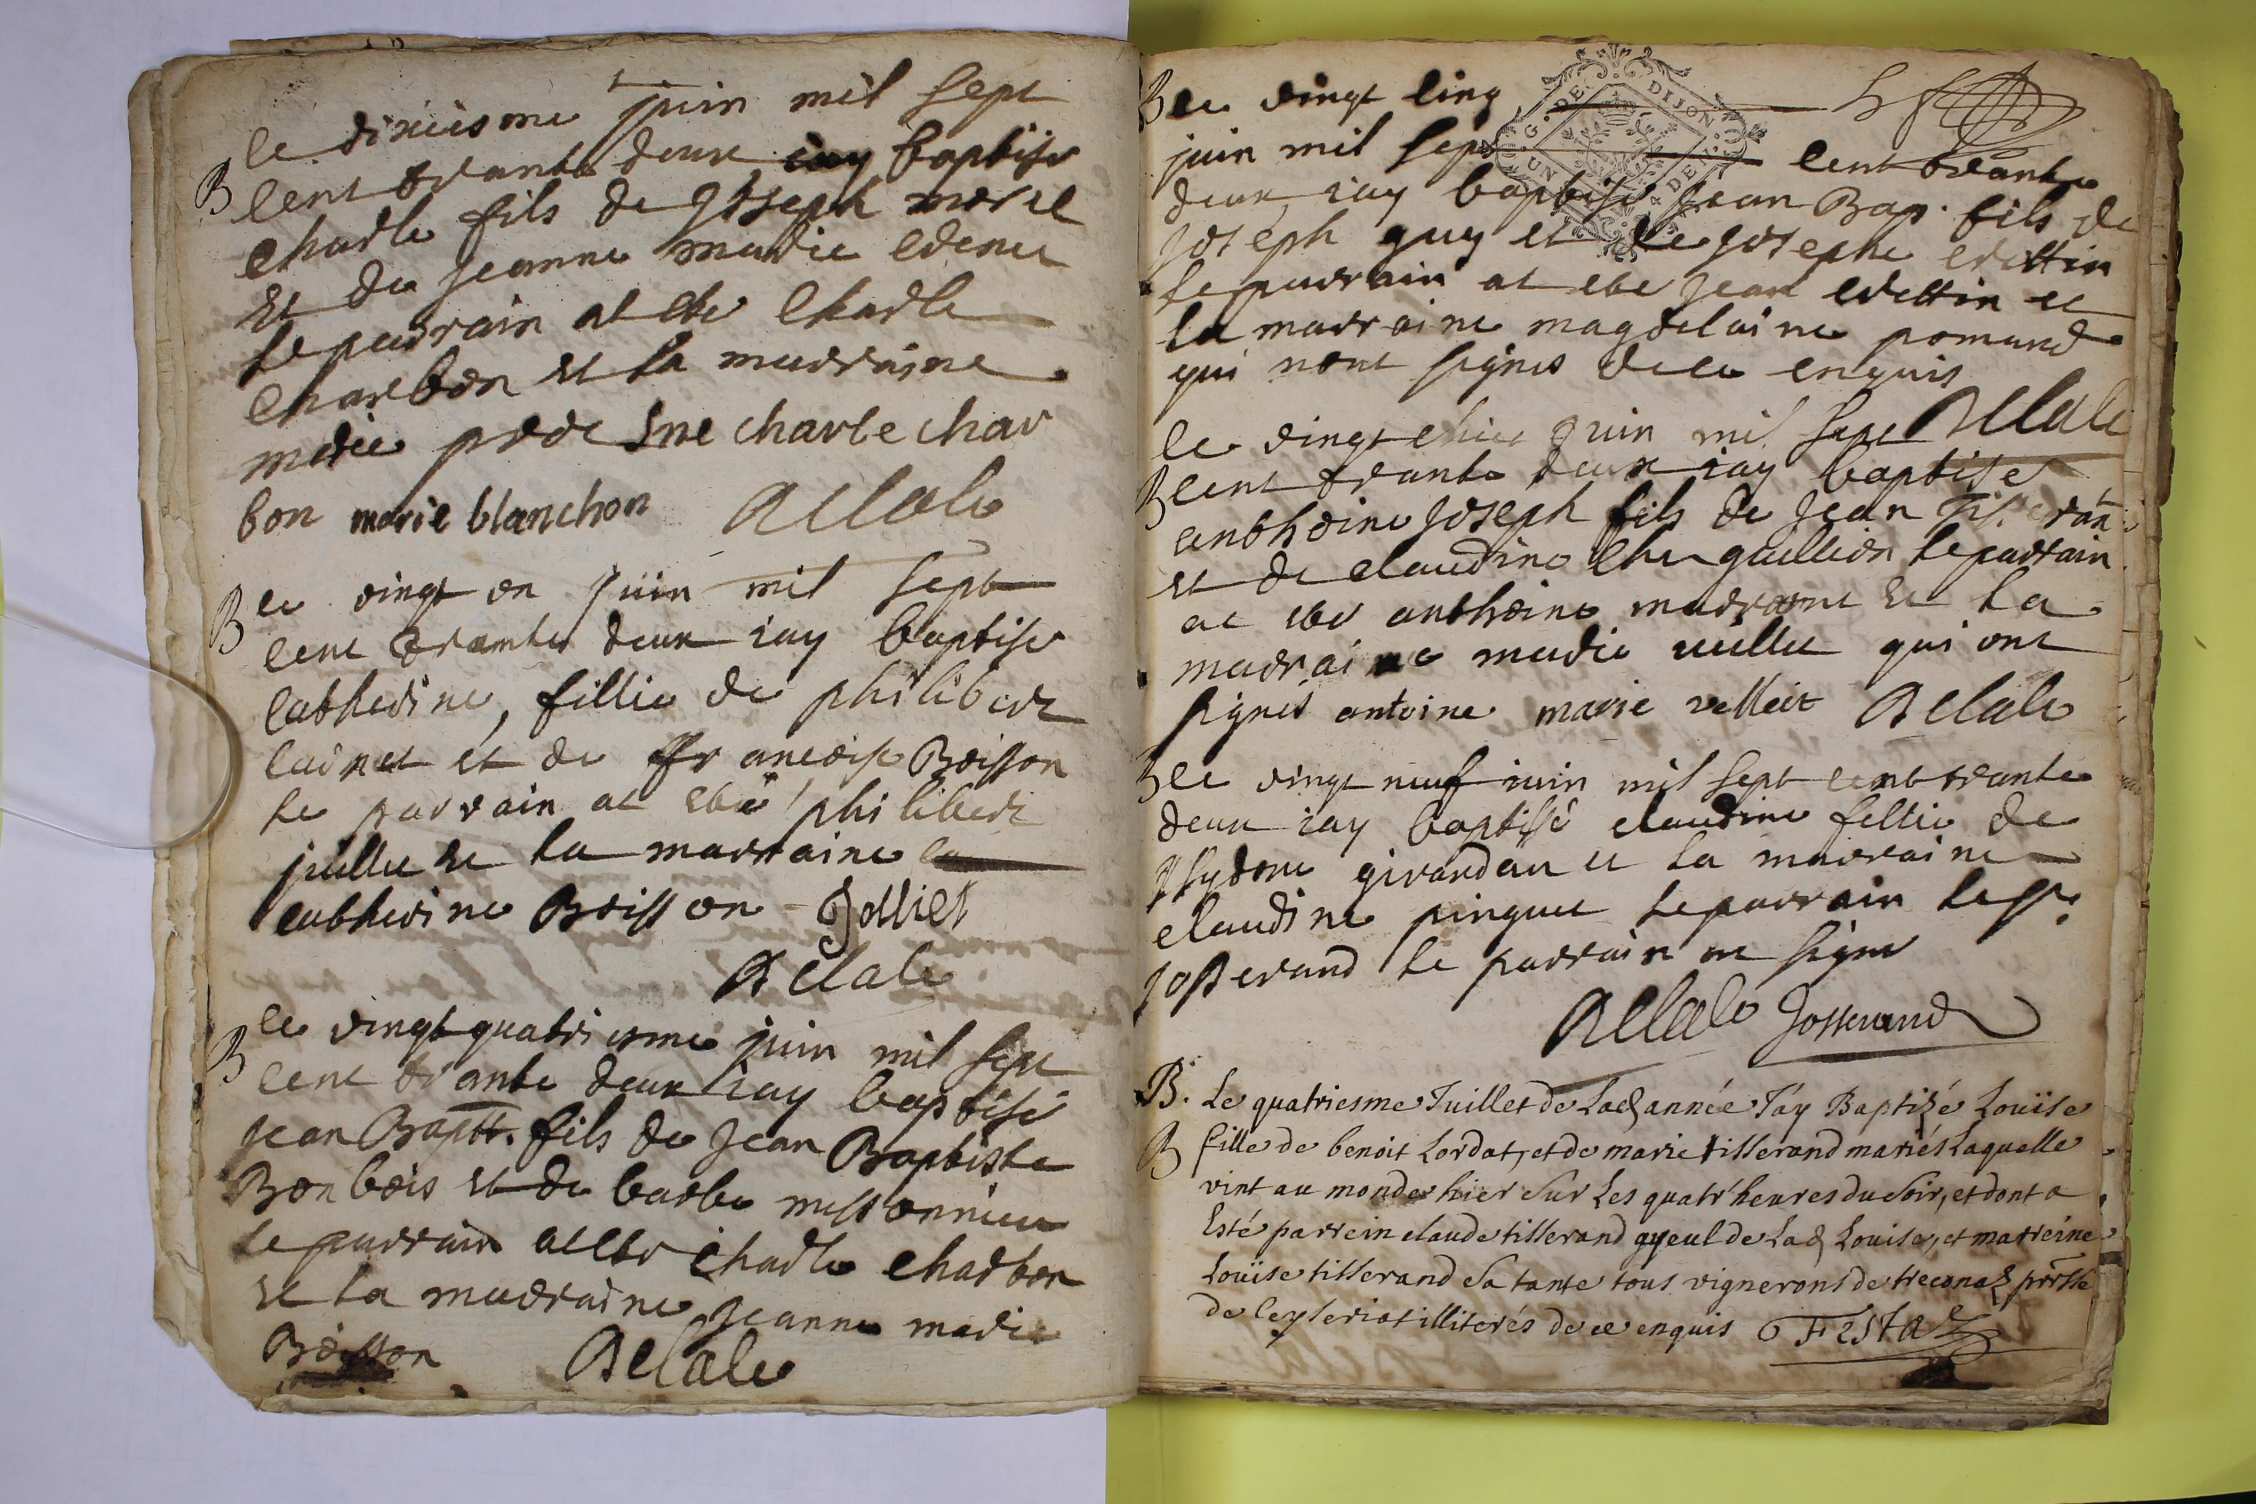 le dixiesme juin mil sept
B cent trante deux iay baptise
charle fils de Joseph morel
et de jeanne marie
le parrain at ete charle
charbon et la marraine
marie charle char
bon marie blanchon Relale
B le vingt on juin mil sept
cent trante deux iay baptise
catherine, fillie de philibert
et de francoise Boisson
le parrain at ete philibert
jullie et la marraine
catherine Boisson Jolliet
Relale
B le vingt quatriesme juin mil sept
cent trante deux iay baptise
jean Bapt. fils de jean Baptiste
Bonbois et de barbe missonnier
le parrain at ete charle charbon
et la marraine jeanne marie
Boisson Relale
B le vingt cinq
G. DE DIJON
juin mil sept cent trante
deux iay baptise jean Bap. fils de
joseph guy et de josephe
le parrain at ete jean et
la marraine magdelaine
qui nont signes de ce enquis
Relale
le vingt juin mil sept
B cent trante deux iay baptise
anthoine joseph fils de jean
et de claudine le parrain
at ete anthoine et la
marraine marie vellet qui ont
signes antoine marie velleit Relale
B le vingt neuf iuin mil sept cent trante
deux iay baptisé claudine fillie de
girardan et la marraine
claudine pinguet le parrain le sr.
josserand le parrain me signe
Relale Josserand
B. Le quatriesme Juillet de lad année J'ay Baptizé Louïse
B fille de benoit Lordat, et de marie tisserand mariés Laquelle
vint au monde hier sur Les quatr'heures du soir, et dont a
Esté parrein claude tisserand ayeul de Lad Louise, et marreine
Louïse tisserand sa tante tous vignerons de treconas
de Ceyseriat illiterés de ce enquis Festaz